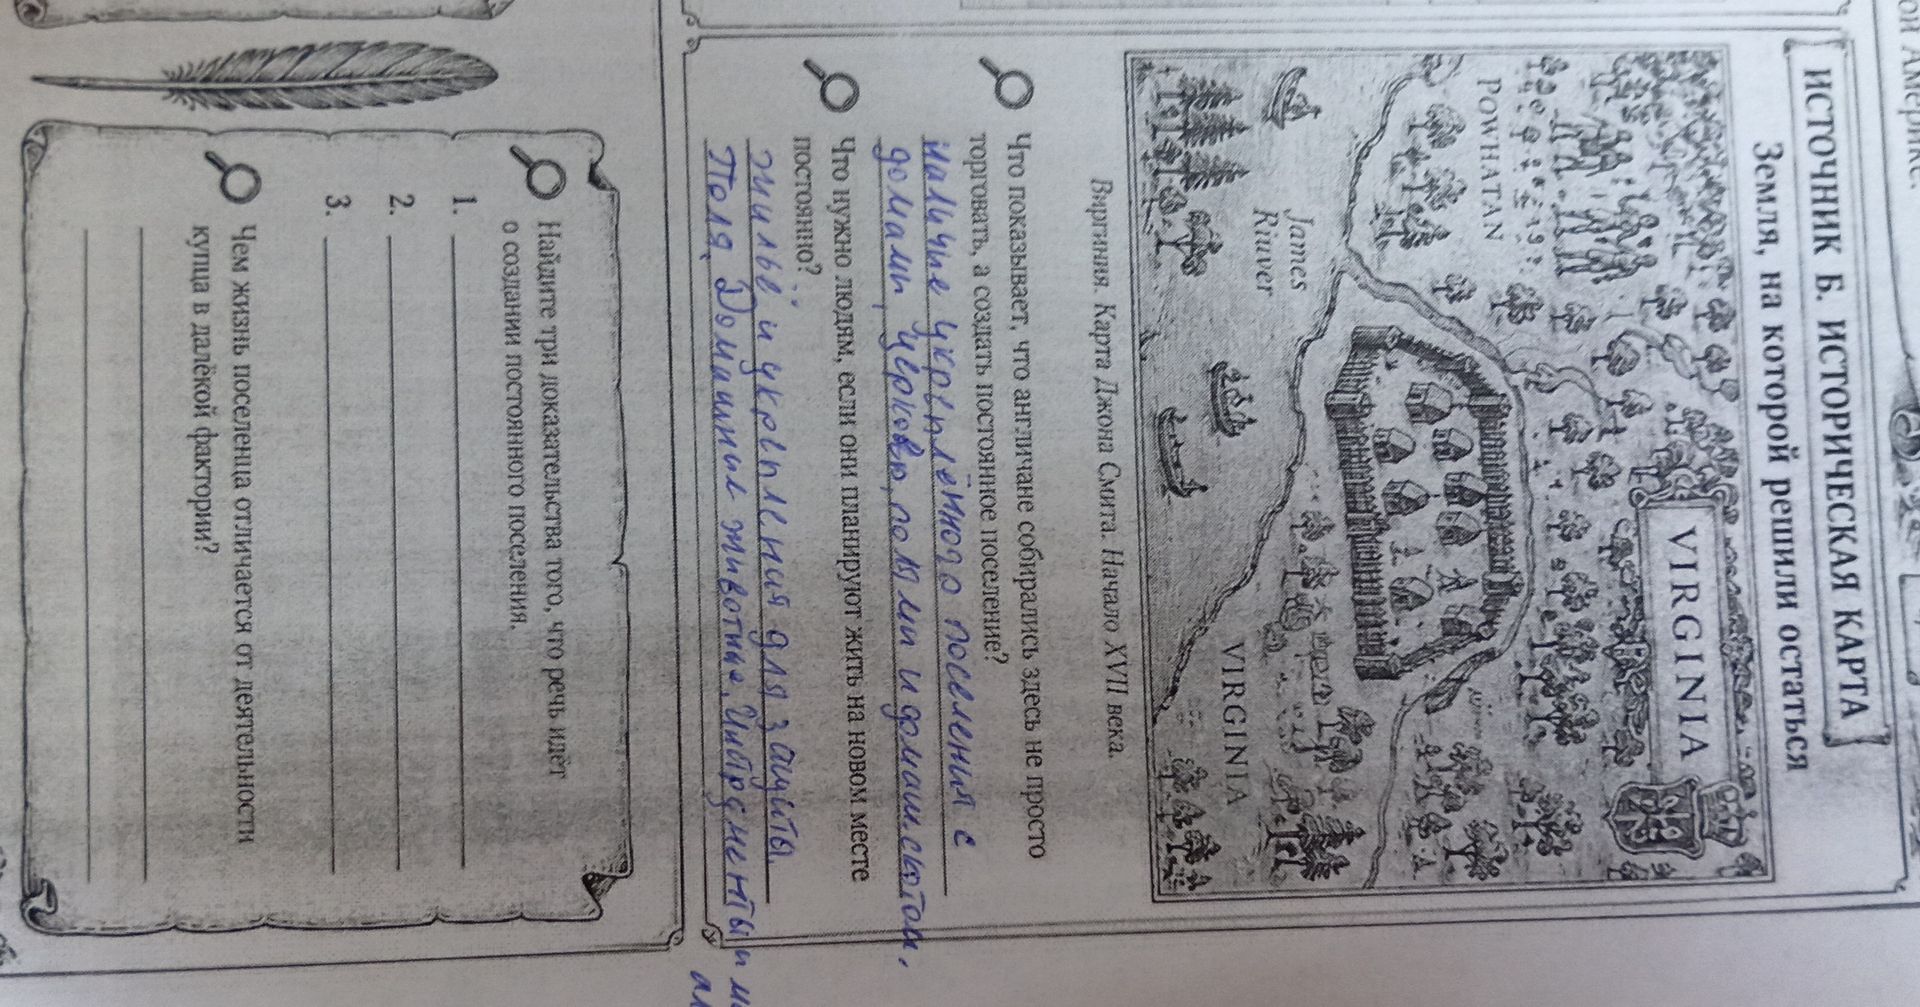 ой Америке.
ИСТОЧНИК Б. ИСТОРИЧЕСКАЯ КАРТА
Земля, на которой решили остаться
VIRGINIA
POWHATAN
James
Riuver
VIRGINIA
Виргиния. Карта Джона Смита. Начало XVII века.
Что показывает, что англичане собирались здесь не просто
торговать, а создать постоянное поселение?
наличие укреплённого поселения с
домами, церковью, полями и домаш.скотом.
Что нужно людям, если они планируют жить на новом месте
постоянно?
жильё и укрепления для защиты
Поля, Домашние животные, Инструменты и
Найдите три доказательства того, что речь идёт
о создании постоянного поселения.
1.
2.
3.
Чем жизнь поселенца отличается от деятельности
купца в далёкой фактории?